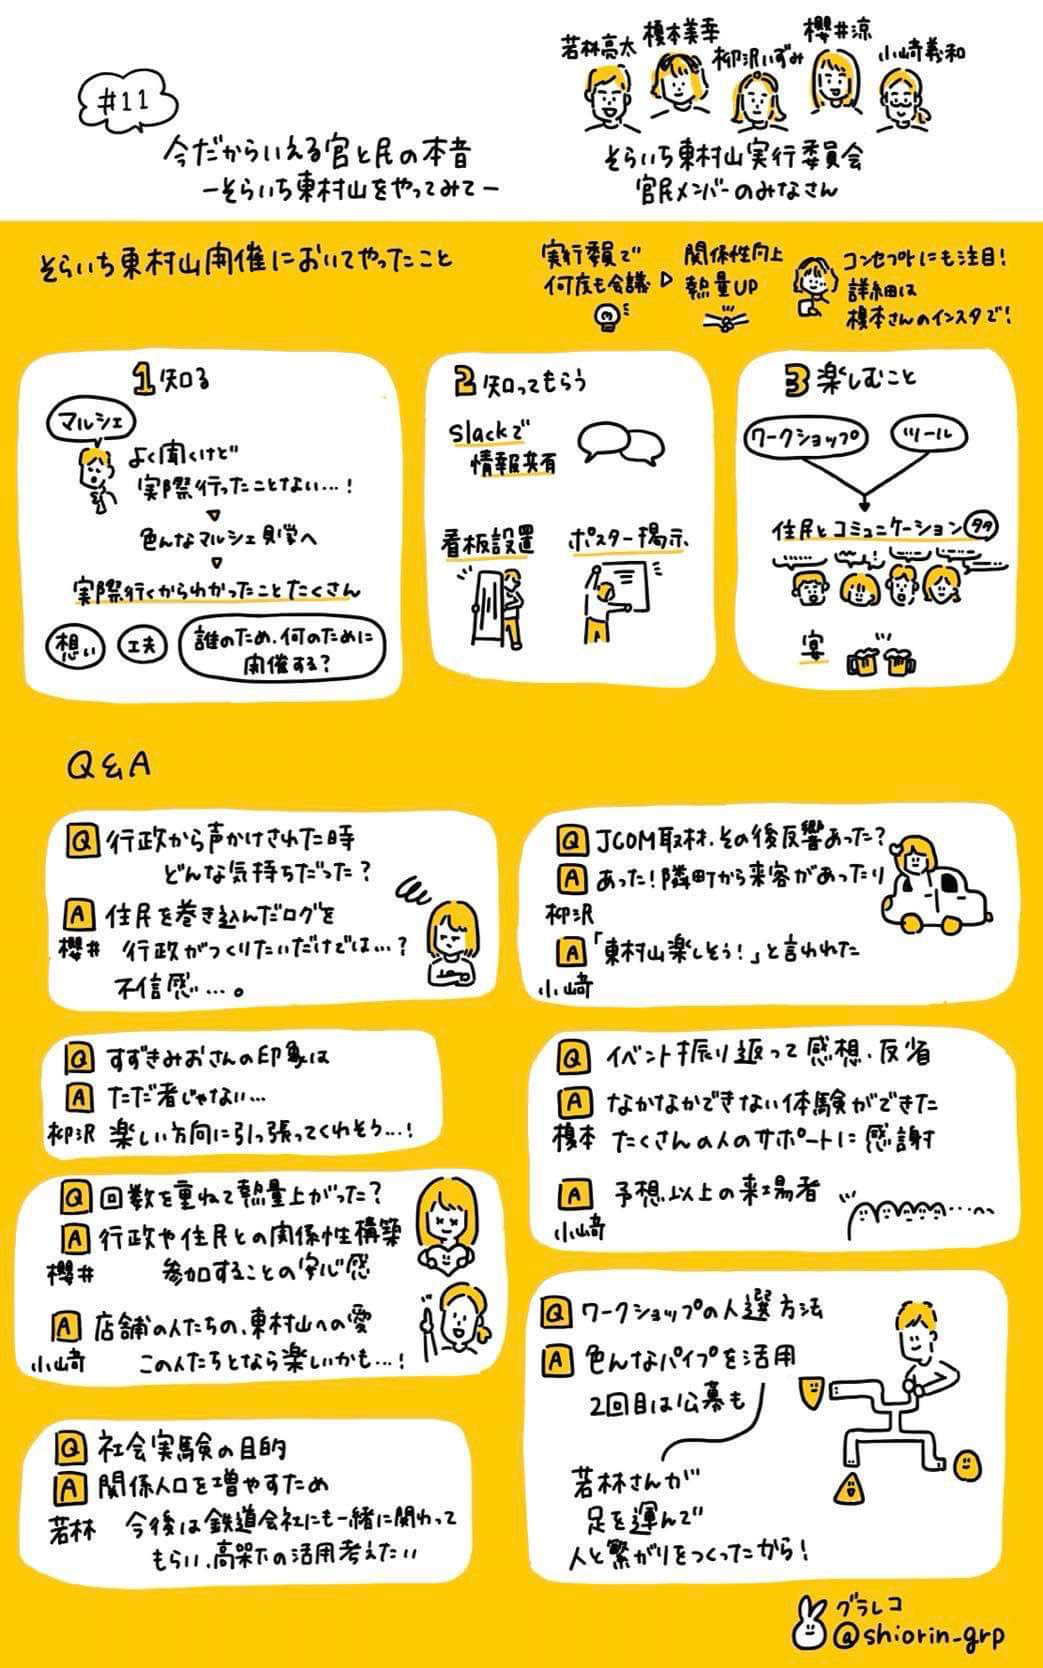 #11
今だからいえる官と民の本音
-そらいち東村山をやってみて-
若林亮太
榎本美幸
柳沢いずみ
櫻井涼
小﨑義和
そらいち東村山実行委員会
官民メンバーのみなさん
そらいち東村山開催においてやったこと
実行委員で
何度も会議
関係性向上
熱量UP
コンセプトにも注目!
詳細は
榎本さんのインスタで!
1 知る
マルシェ
よく聞くけど
実際行ったことない…!
色んなマルシェ見学へ
実際行くからわかったことたくさん
想い
工夫
誰のため、何のために
開催する?
2 知ってもらう
Slackで
情報共有
看板設置
ポスター掲示
3 楽しむこと
ワークショップ
ツール
住民とコミュニケーション 多々
宴
Q&A
Q 行政から声かけされた時
どんな気持ちだった?
A 住民を巻き込んだログを
櫻井 行政がつくりたいだけでは…?
不信感…。
Q すずきみおさんの印象は
A ただ者じゃない…
柳沢 楽しい方向に引っ張ってくれそう…!
Q 回数を重ねて熱量上がった?
A 行政や住民との関係性構築
櫻井 参加することの安心感
A 店舗の人たちの、東村山への愛
小﨑 この人たちとなら楽しいかも…!
Q 社会実験の目的
A 関係人口を増やすため
若林 今後は鉄道会社にも一緒に関わって
もらい、高架下の活用考えたい
Q JCOM取材、その後反響あった?
A あった!隣町から来客があったり
柳沢
A 「東村山楽しそう!」と言われた
小﨑
Q イベント振り返って感想、反省
A なかなかできない体験ができた
榎本 たくさんの人のサポートに感謝
A 予想以上の来場者
小﨑
Q ワークショップの人選方法
A 色んなパイプを活用
2回目は公募も
若林さんが
足を運んで
人と繋がりをつくったから!
グラレコ
@shiorin_grp